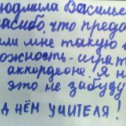 людмила Василье
пасибо, что предо
ли мне такую в
можность - играть
аккордеоне. Я н
это не забуду
Д НЁМ УЧИТЕЛЯ!